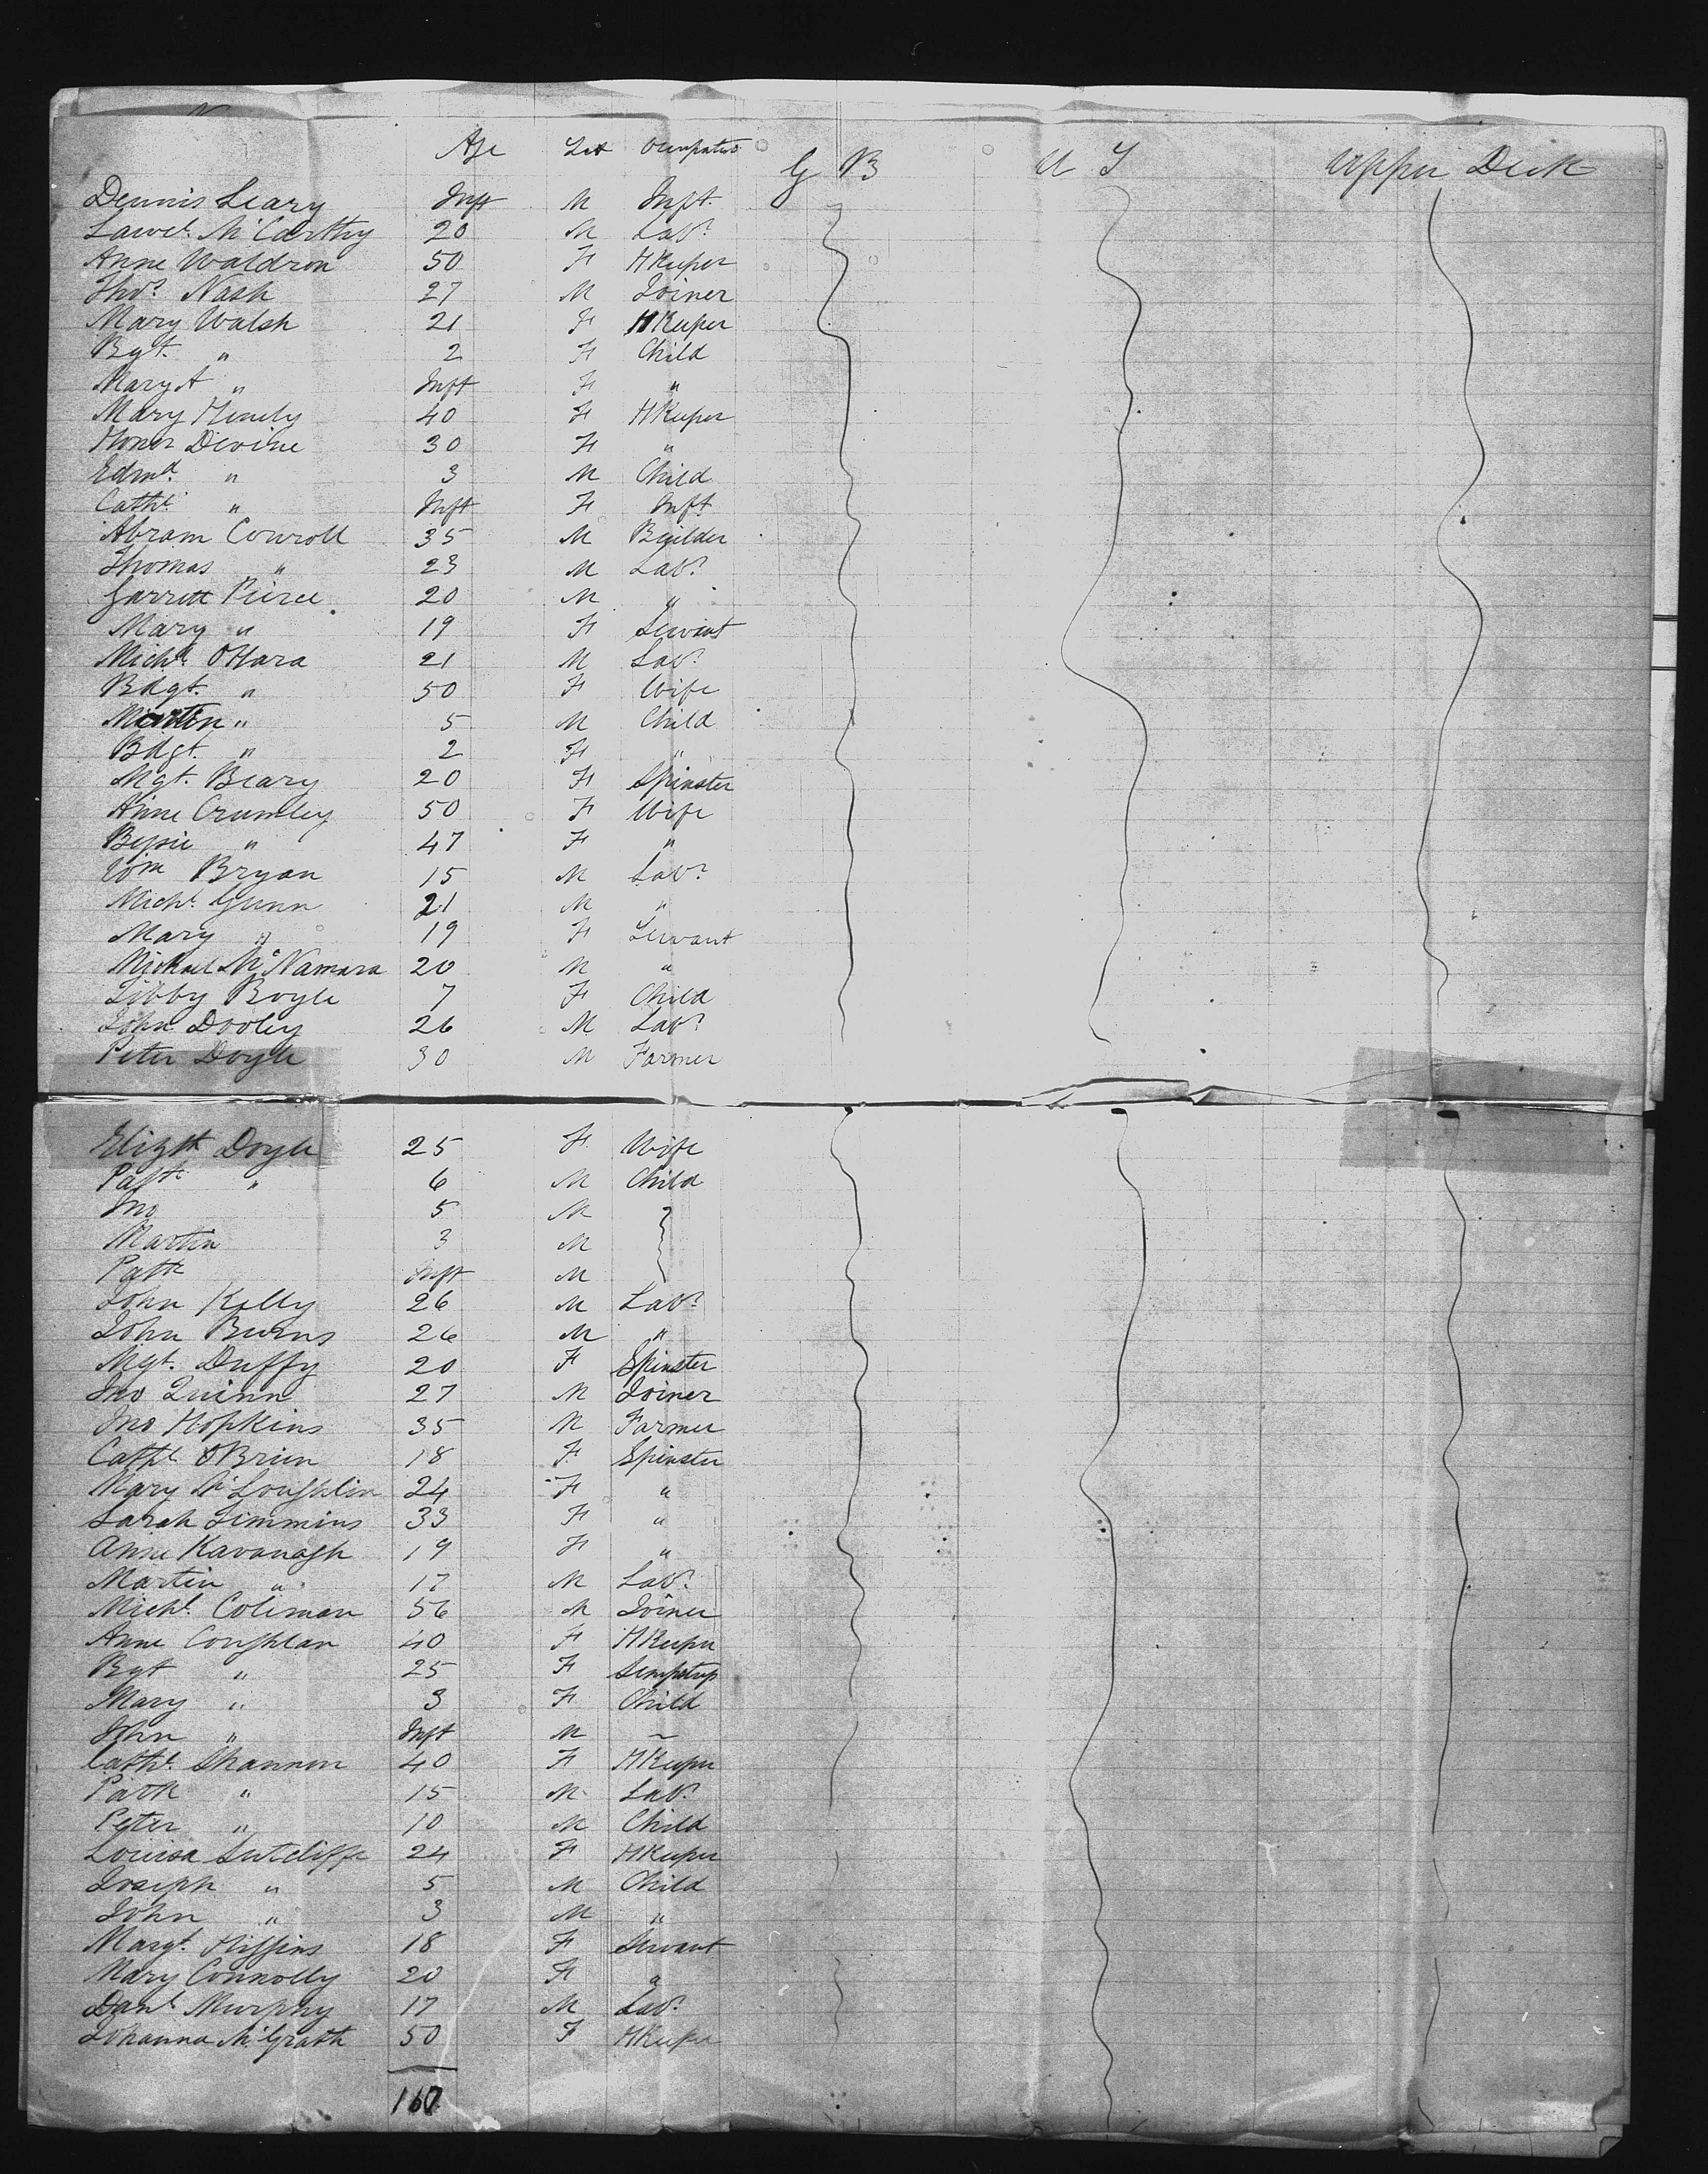 Age Sex Occupatn G B U S Upper Deck
Dennis Leary Inft M Inft
Lawce. McCarthy 20 M Labr
Anne Waldron 50 F HKeeper
Thos. Nash 27 M Joiner
Mary Walsh 21 F HKeeper
Bgt. " 2 F Child
Mary A " Inft F "
Mary Henely 40 F HKeeper
Honor Devine 30 F "
Edmd. " 3 M Child
Cathe. " Inft F Inft
Abram Conroll 35 M Builder
Thomas " 23 M Labr
Garrett Pierce 20 M "
Mary " 19 F Servant
Michl. OHara 21 M Labr
Bdgt. " 50 F Wife
Martin " 5 M Child
Bdgt. " 2 F "
Mgt. Beary 20 F Spinster
Anne Crumley 50 F Wife
Bessie " 47 F "
Wm Bryan 15 M Labr
Michl. Gunn 21 M "
Mary " 19 F Servant
Michael McNamara 20 M "
Libby Boyle 7 F Child
John Dooley 26 M Labr
Peter Doyle 30 M Farmer
Elizth Doyle 25 F Wife
Patk " 6 M Child
Jno 5 M
Martin 3 M
Patk Inft M
John Kelly 26 M Labr
John Burns 26 M "
Mgt. Duffy 20 F Spinster
Jno Quinn 27 M Joiner
Jno Hopkins 35 M Farmer
Cathe OBrien 18 F Spinster
Mary McLoughlin 24 F "
Sarah Timmins 33 F "
Anne Kavanagh 19 F "
Martin " 17 M Labr
Michl. Coleman 56 M Joiner
Anne Coughlan 40 F HKeeper
Bgt " 25 F Sempstress
Mary " 3 F Child
John " Inft M ~
Cathe. Shannon 40 F HKeeper
Patk " 15 M Labr
Peter " 10 M Child
Louisa Sutcliffe 24 F HKeeper
Joseph " 5 M Child
John " 3 M "
Margt. Higgins 18 F Servant
Mary Connolly 20 F "
Danl. Murphy 17 M Labr
Johanna McGrath 50 F HKeeper
167